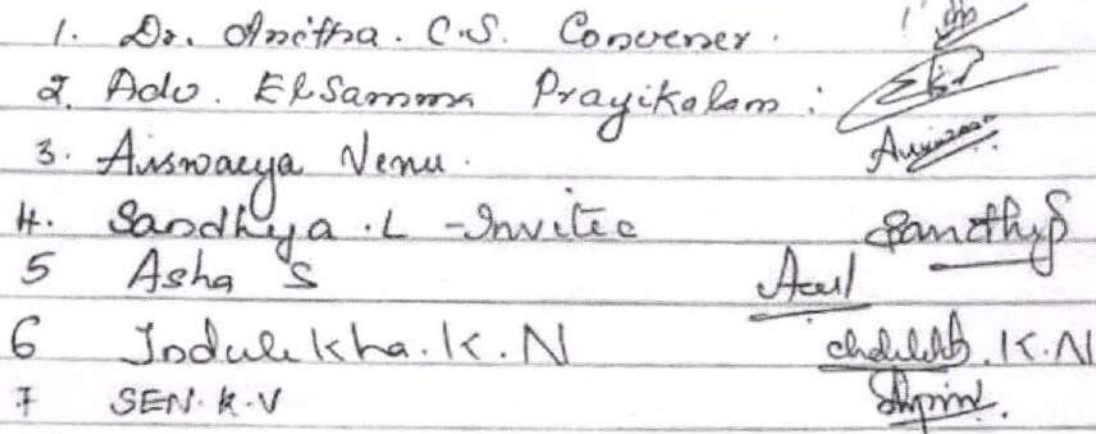 1. Dr. Anitha. C.S. Convener.
2. Adv. Elsamma Prayikalam :
3. Aiswarya Venu.
4. Sandhya .L - Invitee Sandhya
5 Asha S
6 Indulekha. K. N K.N
7 SEN. K. V